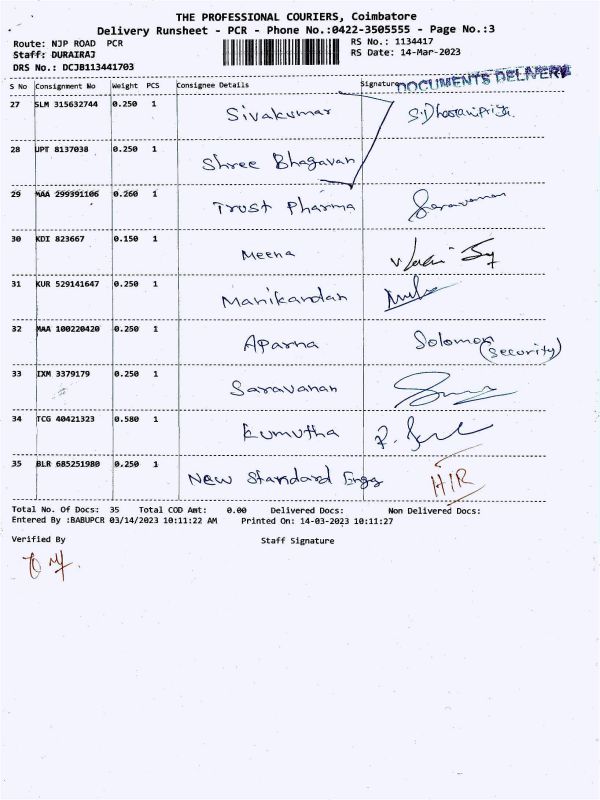 THE PROFESSIONAL COURIERS, Coimbatore
Delivery Runsheet - PCR - Phone No.:0422-3505555 - Page No.:3
Route: NJP ROAD PCR
RS No.: 1134417
Staff: DURAIRAJ
RS Date: 14-Mar-2023
DRS No.: DCJB113441703
DOCUMENTS DELIVERY
S No Consignment No Weight PCS Consignee Details Signature
27 SLM 315632744 0.250 1 Sivakumar
28 UPT 8137038 0.250 1 Shree Bhagavan
29 MAA 299391106 0.260 1 Trust Pharma
30 KDI 823667 0.150 1 Meena
31 KUR 529141647 0.250 1 Manikandan
32 MAA 100220420 0.250 1 Aparna Solomon (security)
33 IXM 3379179 0.250 1 Saravanan
34 TCG 40421323 0.580 1 Kumutha
35 BLR 685251980 0.250 1 New Standard Engg HIR
Total No. Of Docs: 35 Total COD Amt: 0.00 Delivered Docs: Non Delivered Docs:
Entered By :BABUPCR 03/14/2023 10:11:22 AM Printed On: 14-03-2023 10:11:27
Verified By Staff Signature